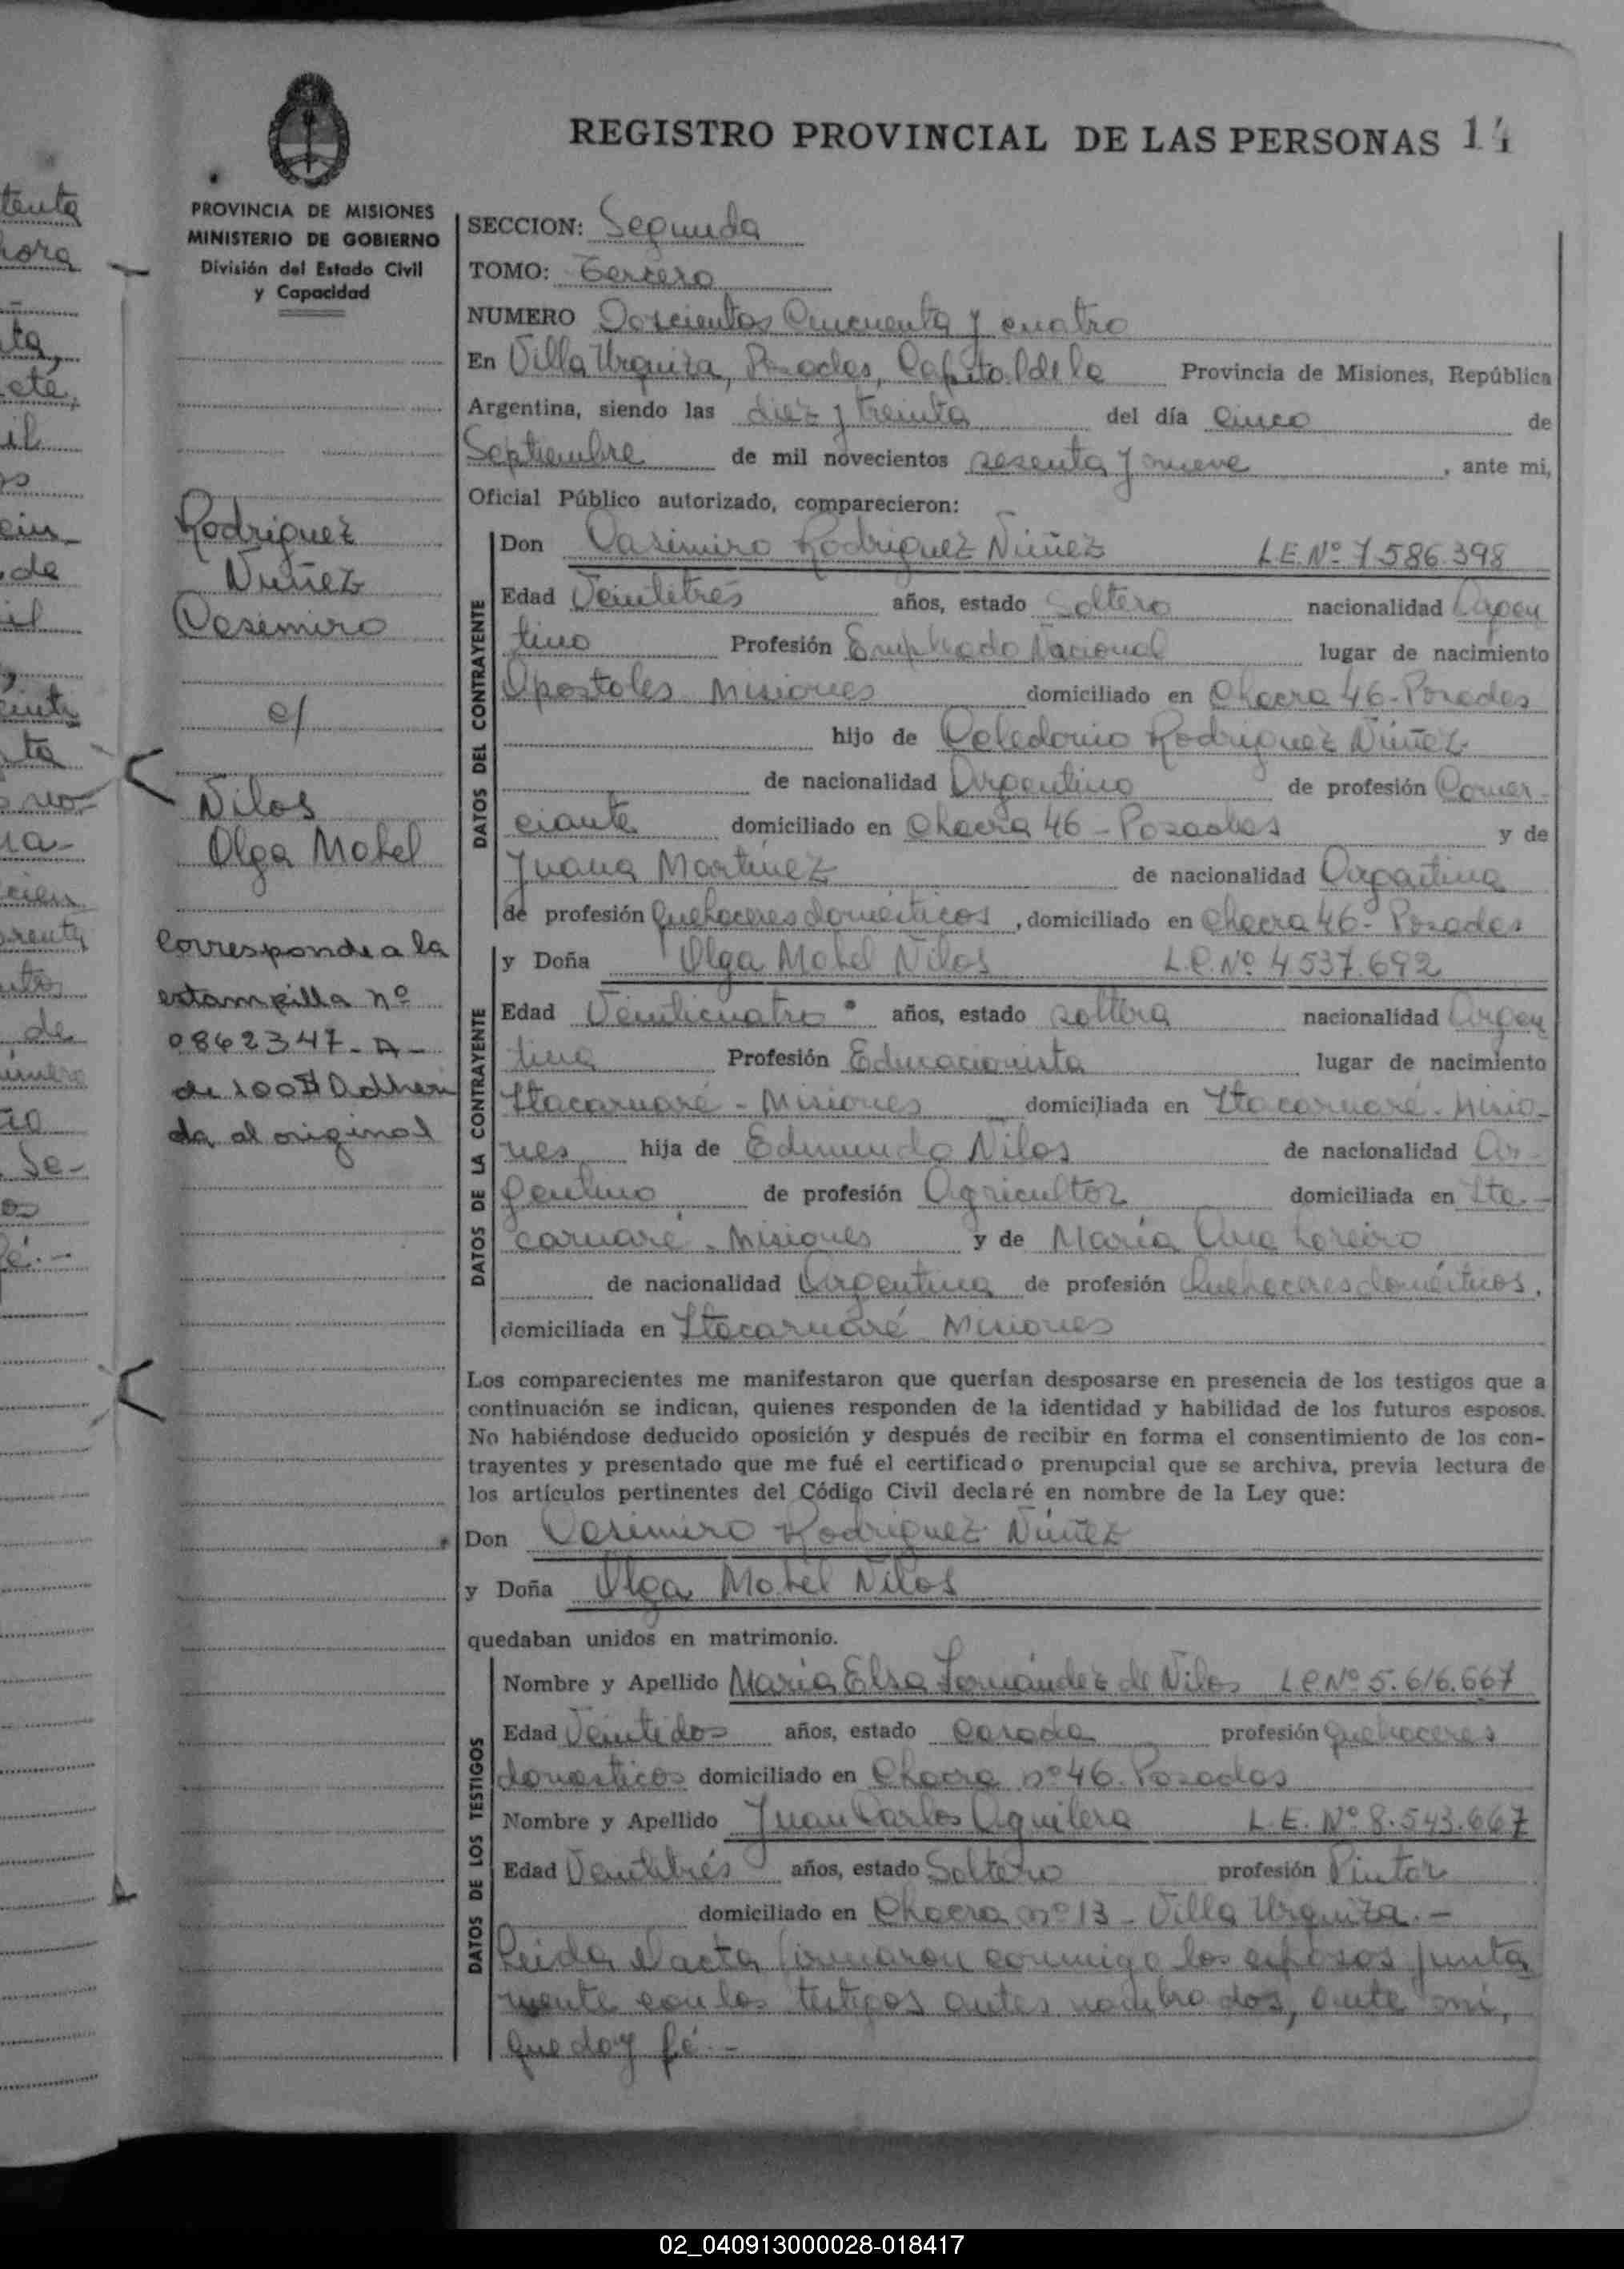 REGISTRO PROVINCIAL DE LAS PERSONAS 14
PROVINCIA DE MISIONES
MINISTERIO DE GOBIERNO
División del Estado Civil
y Capacidad
Rodriguez
Nuñez
Casimiro
c/
Nilos
Olga Mabel
Corresponde a la
estampilla nº
0862347-A-
de 100$ Adheri
da al original
SECCION: Segunda
TOMO: Tercero
NUMERO Doscientos Cincuenta y cuatro
En Villa Urquiza, Posadas, Capital de la Provincia de Misiones, República
Argentina, siendo las diez y treinta del día Cinco de
Septiembre de mil novecientos sesenta y nueve, ante mi,
Oficial Público autorizado, comparecieron:
DATOS DEL CONTRAYENTE
Don Casimiro Rodriguez Núñez L.E.Nº 7.586.398
Edad Veintitres años, estado Soltero nacionalidad Argen
tino Profesión Empleado Nacional lugar de nacimiento
Apostoles Misiones domiciliado en Chacra 46-Posadas
hijo de Celedonio Rodriguez Núñez
de nacionalidad Argentino de profesión Comer-
ciante domiciliado en Chacra 46 - Posadas y de
Juana Martinez de nacionalidad Argentina
de profesión Quehaceres domésticos, domiciliado en Chacra 46- Posadas
DATOS DE LA CONTRAYENTE
y Doña Olga Mabel Nilos L.C.Nº 4.537.692
Edad Veinticuatro años, estado soltera nacionalidad Argen
tina Profesión Educacionista lugar de nacimiento
Itacaruaré - Misiones domiciliada en Itacaruaré - Misio-
nes hija de Edmundo Nilos de nacionalidad Ar-
gentino de profesión Agricultor domiciliada en Ita-
caruaré - Misiones y de María Ana Loreiro
de nacionalidad Argentina de profesión Quehaceres domésticos,
domiciliada en Itacaruaré Misiones
Los comparecientes me manifestaron que querían desposarse en presencia de los testigos que a
continuación se indican, quienes responden de la identidad y habilidad de los futuros esposos.
No habiéndose deducido oposición y después de recibir en forma el consentimiento de los con-
trayentes y presentado que me fué el certificado prenupcial que se archiva, previa lectura de
los artículos pertinentes del Código Civil declaré en nombre de la Ley que:
Don Casimiro Rodriguez Núñez
y Doña Olga Mabel Nilos
quedaban unidos en matrimonio.
DATOS DE LOS TESTIGOS
Nombre y Apellido María Elsa Fernández de Nilos L.C.Nº 5.616.667
Edad Veintidos años, estado casada profesión Quehaceres
domesticos domiciliado en Chacra nº 46. Posadas
Nombre y Apellido Juan Carlos Aguilera L.E. Nº 8.543.667
Edad Veintitrés años, estado Soltero profesión Pintor
domiciliado en Chacra nº 13 - Villa Urquiza.-
Leida el acta firmaron conmigo los esposos junta
mente con los testigos antes nombrados, ante mí,
que doy fé.-
02_040913000028-018417